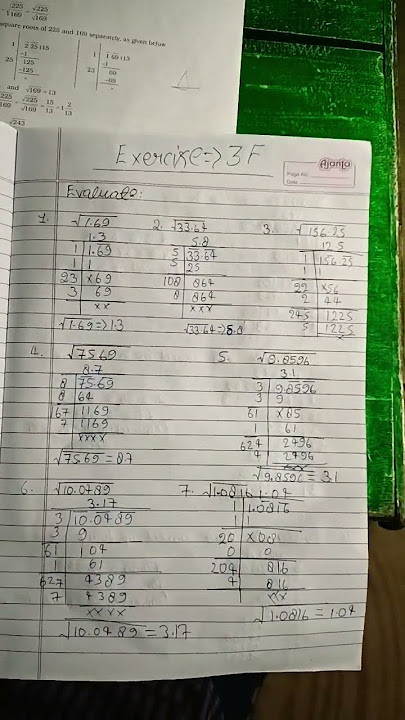 √225
√169
square roots of 225 and 169 separately, as given below
1 | 2 25 | 15
-1
25 | 125
-125
1 | 1 69 | 13
-1
23 | 69
-69
and √169 = 13
√225 / √169 = 15/13 = 1 2/13
√243
Exercise => 3F
Ajanta
Page No.
Date
Evaluate:
1. √1.69
1.3
1 | 1.69
1 | 1
23 | ×69
3 | 69
××
√1.69 => 1.3
2. √33.64
5.8
5 | 33.64
5 | 25
108 | 864
8 | 864
×××
√33.64 => 5.8
3. √156.25
12 5
1 | 156.25
1 | 1
22 | ×56
2 | 44
245 | 1225
5 | 1225
4. √75.69
8.7
8 | 75.69
8 | 64
167 | 1169
7 | 1169
××××
√75.69 = 8.7
5. √9.8596
3.1
3 | 9.8596
3 | 9
61 | ×85
1 | 61
624 | 2496
4 | 2496
×××
√9.8596 = 3.1
6. √10.0489
3.17
3 | 10.0489
3 | 9
61 | 104
1 | 61
627 | 4389
7 | 4389
××××
√10.0489 = 3.17
7. √1.0816
1.04
1 | 1.0816
1 | 1
20 | ×08
0 | 0
204 | 816
4 | 816
×××
√1.0816 = 1.04